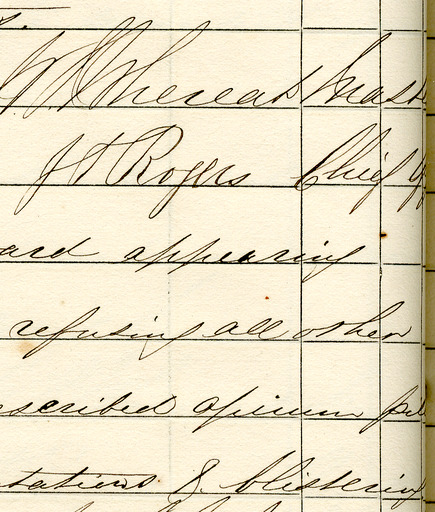 Mast
J T Rogers Chief
ard appearing
refusing all other
scribed opium pil
tations & blistering